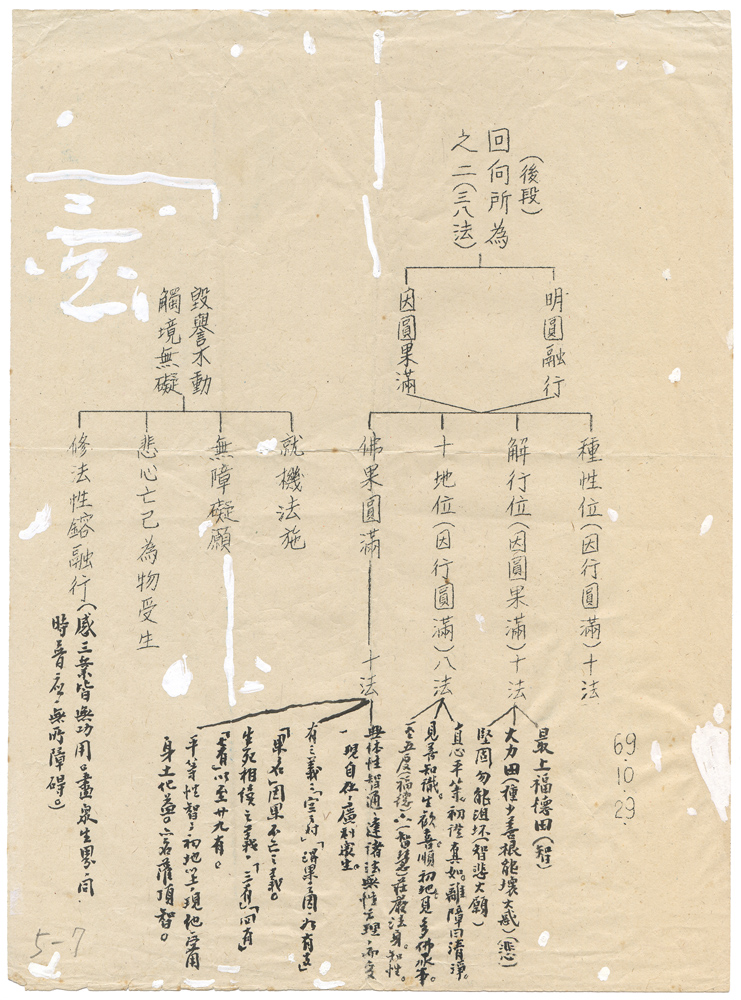 (後段)
回向所為
之二(三八法)
明圓融行
因圓果滿
種性位(因行圓滿)十法
解行位(因圓果滿)十法
十地位(因行圓滿)八法
佛果圓滿 十法
毀譽不動
觸境無礙
就機法施
無障礙願
悲心亡己為物受生
修法性鎔融行(感三業皆無功用。盡衆生界向
時普應,無所障碍。)
69.10.29.
最上福德田(智)
大力田(種少善根能壞大惑)(悲)
堅固勿能沮坏(智悲大願)
直心平等。初證真如。離障曰清淨。
見善知識。生歡喜。順初地見多佛承事。
一至五度(福德)六(智慧)莊嚴法身。知性。
無体性智通達諸法無性之理,而交
現自在。廣利衆生。
「果名」因果不亡之義。
生死相續之義。「三有」「四有」
以至廿九有。
平等性智:初地
身土化益。
5-7